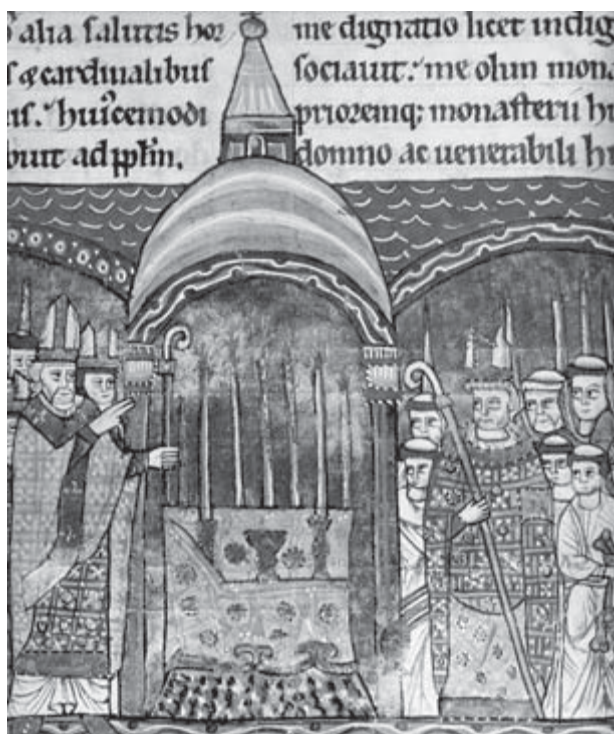 alia salutis hor
& cardinalibus
hui᾽cemodi
buit ad pplm̅.
me dignatio licet indig
sociauit. me olim mona
prioremq; monasterii hu
domno ac uenerabili hu